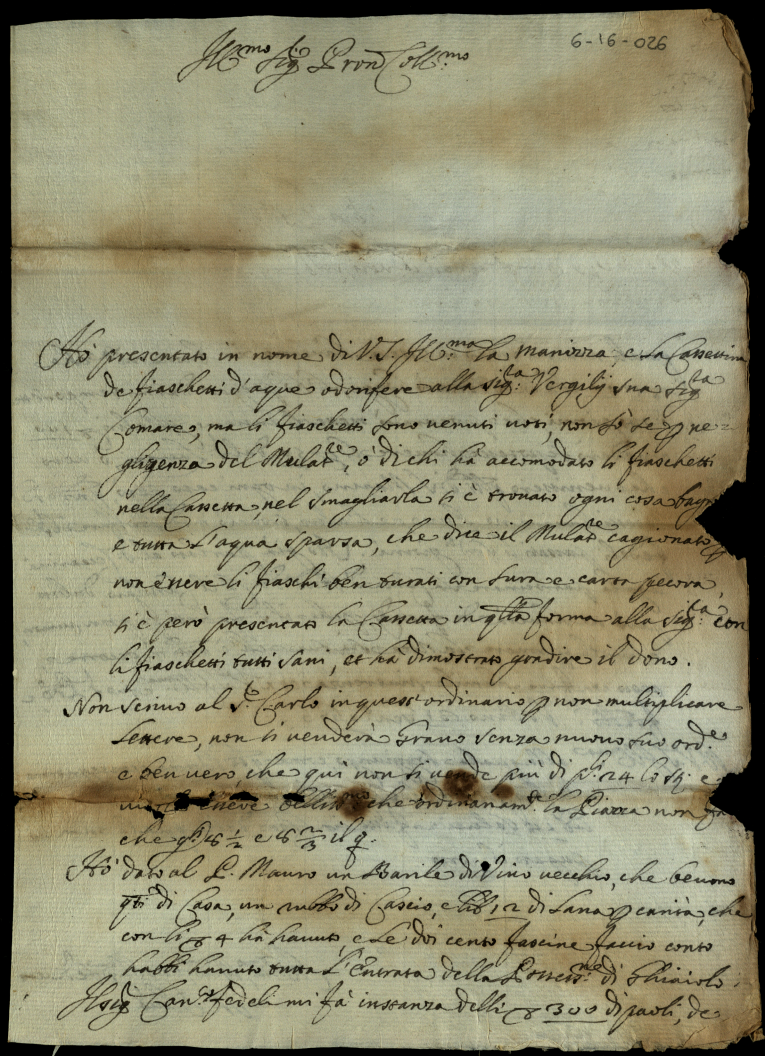 6-16-026
Ill.mo Sig.r Pron Coll.mo
Hò presentato in nome di V.S. Ill.ma la manizza, e la Cassettina
de fiaschetti d'aque odorifere alla Sig.ra Vergilij sua Sig.ra
Comare, ma li fiaschetti sono venuti voti, non sò se p ne=
gligenza del Mulat.re, ò di chi hà accomodato li fiaschetti
nella Cassetta, nel smagliarla si è trovato ogni cosa bagn
e tutta l'aqua sparsa, che dice il Mulat.re cagionato p
non essere li fiaschi ben turati con sura e carta pecora,
si è però presentato la Cassetta in qlla forma alla Sig.ra con
li fiaschetti tutti sani, et hà dimostrato gradire il dono.
Non scrivo al S.r Carlo in quest'ordinario p non multiplicare
lettere, non si venderà Grano senza nuovo suo ord.e
e ben vero, che qui non si vende più di p.li 24 lo
essere bellis.mo che ordinariam.te la Piazza non
che p.li 1/2 e 2/3 il q.
Hò dato al P. Mauro un Barile di Vino vecchio, che bevono
qti di Casa, un rubbo di Cascio, e lib 12 di Lana p carità, che
con li 4 hà havuto, e le doi cento fascine faccio conto
habbi havuto tutta l'entrata della Possess.ne di Ghiaiolo.
Il Sig.r Can.co Fedeli mi fà instanza delli 300 di paoli, de